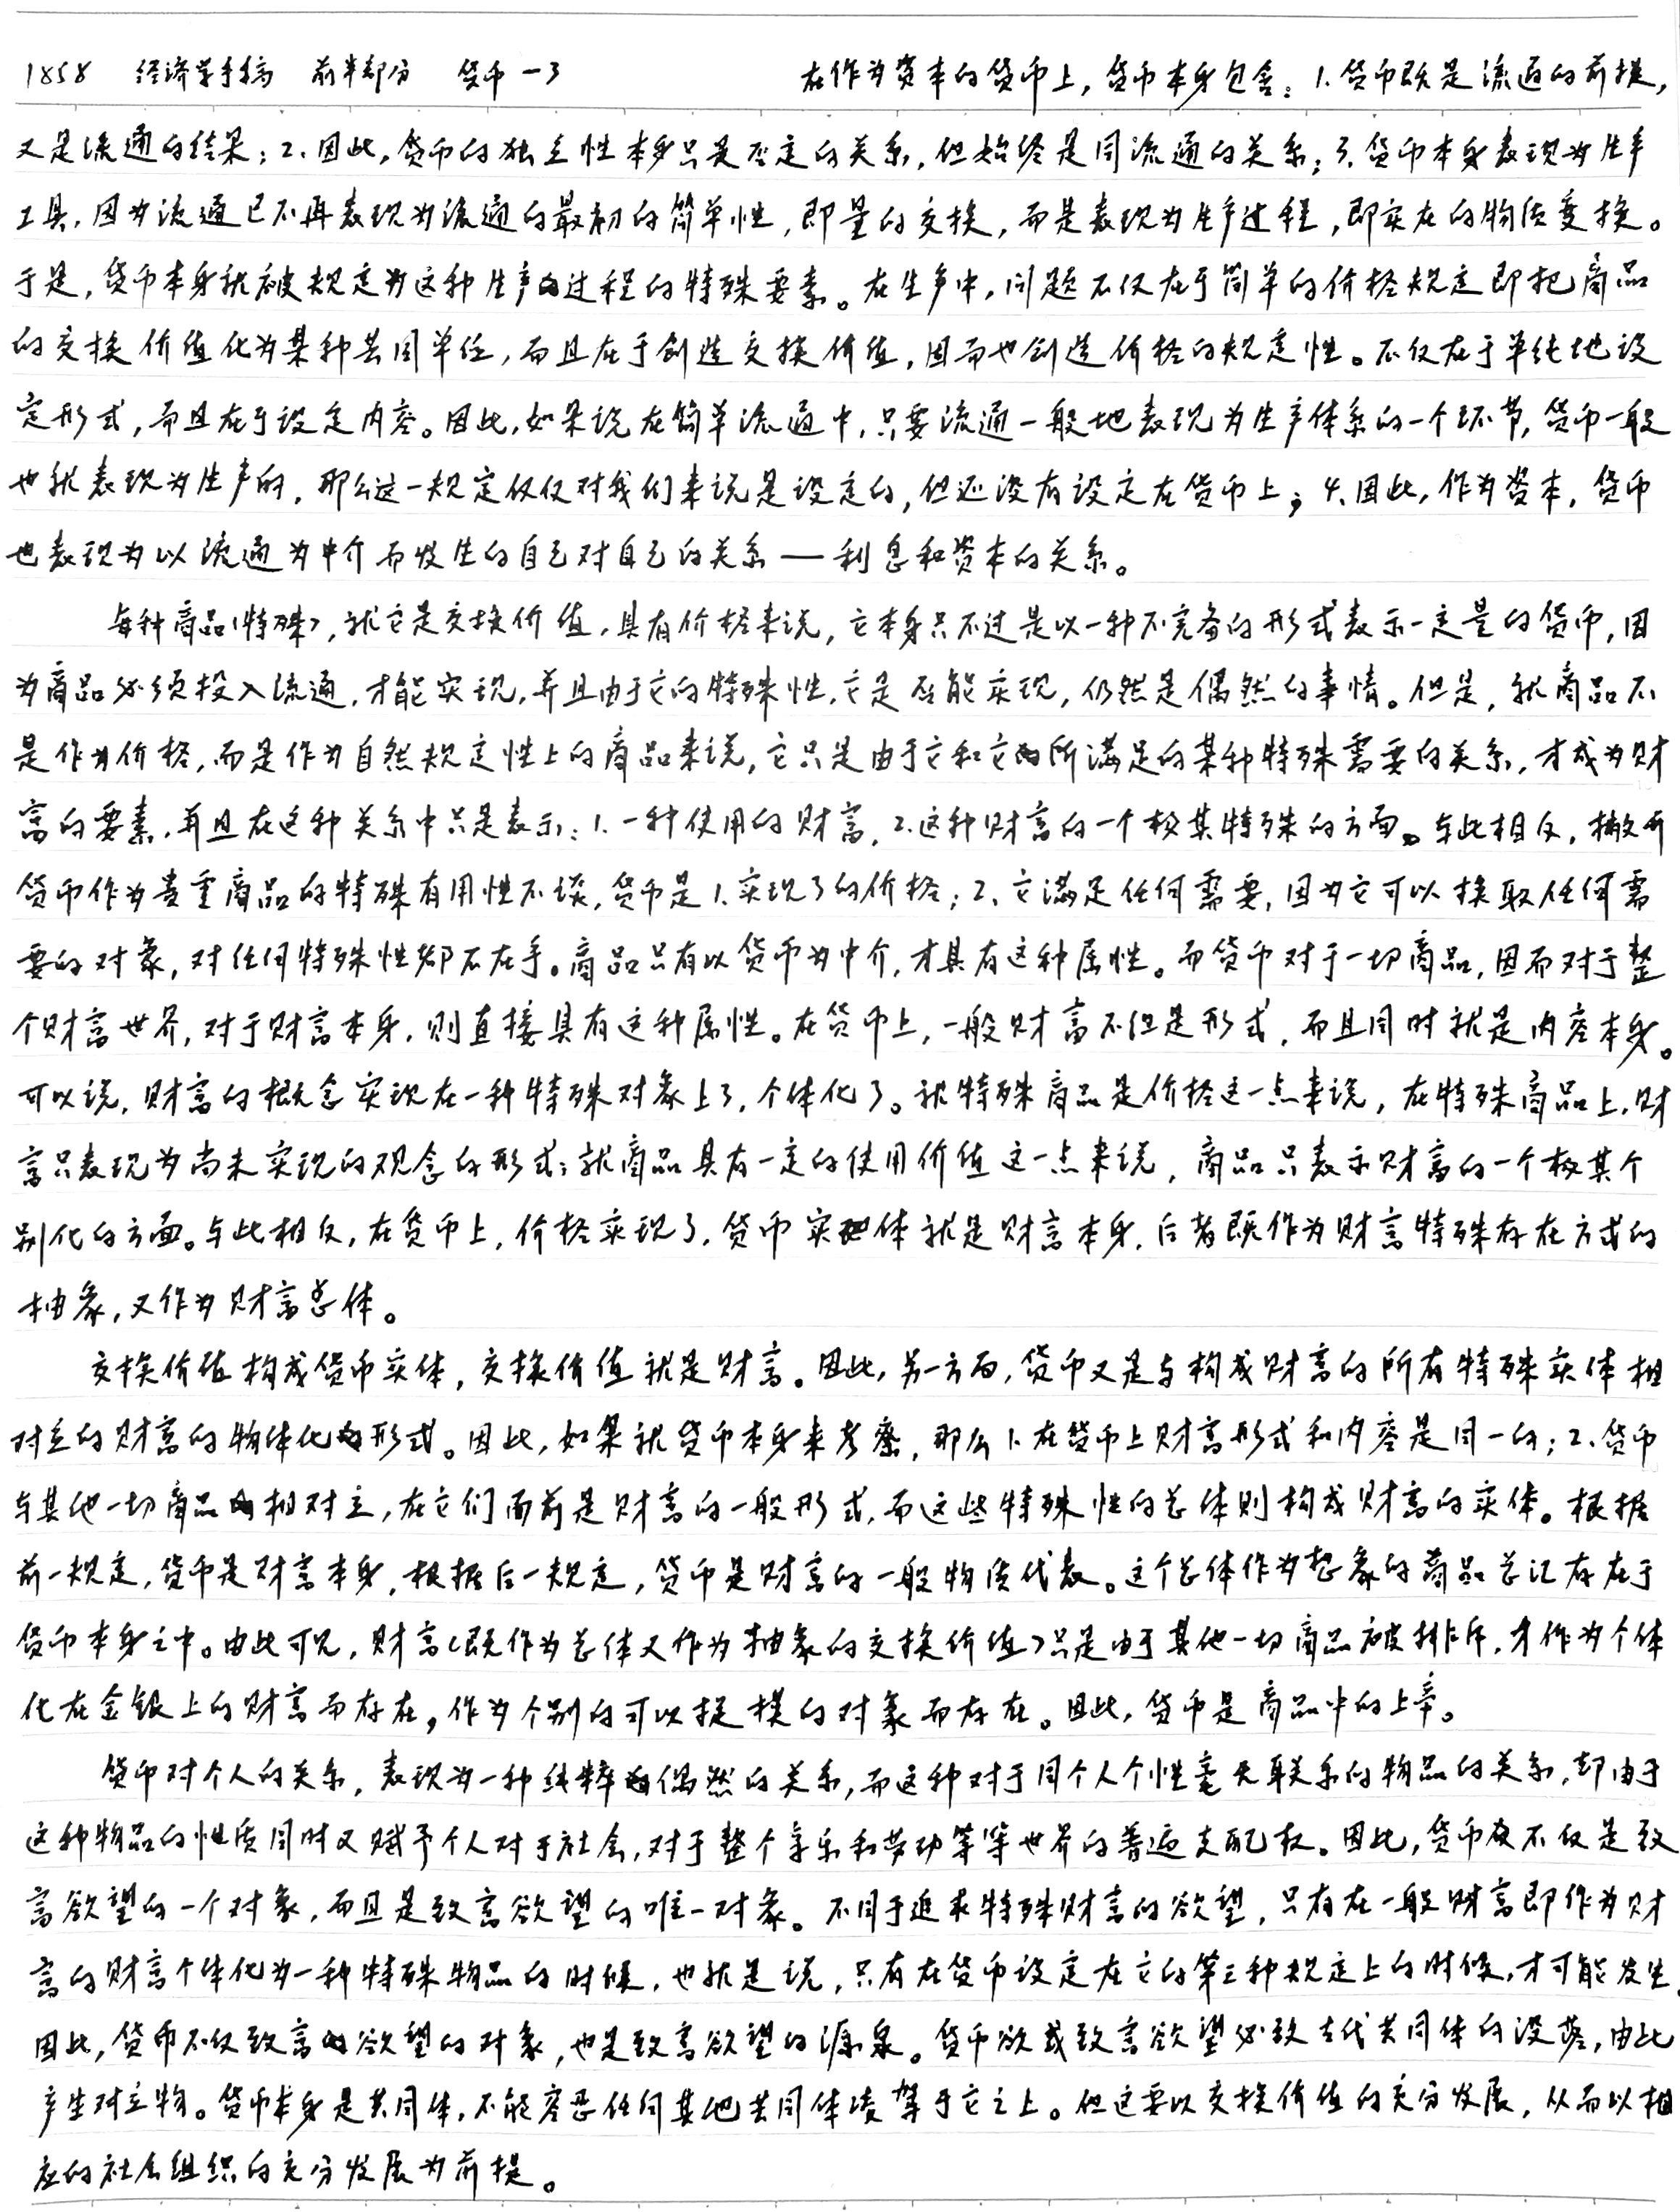 1858 经济学手稿 前半部分 货币-3 在作为资本的货币上,货币本身包含:1.货币既是流通的前提,
又是流通的结果;2.因此,货币的独立性本身只是否定的关系,但始终是同流通的关系;3.货币本身表现为生产
工具,因为流通已不再表现为流通的最初的简单性,即量的交换,而是表现为生产过程,即实在的物质变换。
于是,货币本身就被规定为这种生产过程的特殊要素。在生产中,问题不仅在于简单的价格规定即把商品
的交换价值化为某种共同单位,而且在于创造交换价值,因而也创造价格的规定性。不仅在于单纯地设
定形式,而且在于设定内容。因此,如果说在简单流通中,只要流通一般地表现为生产体系的一个环节,货币一般
也就表现为生产的,那么这一规定仅仅对我们来说是设定的,但还没有设定在货币上;4.因此,作为资本,货币
也表现为以流通为中介而发生的自己对自己的关系——利息和资本的关系。
每种商品(特殊),就它是交换价值,具有价格来说,它本身只不过是以一种不完备的形式表示一定量的货币,因
为商品必须投入流通,才能实现,并且由于它的特殊性,它是否能实现,仍然是偶然的事情。但是,就商品不
是作为价格,而是作为自然规定性上的商品来说,它只是由于它和它所满足的某种特殊需要的关系,才成为财
富的要素,并且在这种关系中只是表示:1.一种使用的财富,2.这种财富的一个极其特殊的方面。与此相反,撇开
货币作为贵重商品的特殊有用性不谈,货币是1.实现了的价格;2.它满足任何需要,因为它可以换取任何需
要的对象,对任何特殊性都不在乎。商品只有以货币为中介,才具有这种属性。而货币对于一切商品,因而对于整
个财富世界,对于财富本身,则直接具有这种属性。在货币上,一般财富不但是形式,而且同时就是内容本身。
可以说,财富的概念实现在一种特殊对象上了,个体化了。就特殊商品是价格这一点来说,在特殊商品上,财
富只表现为尚未实现的观念的形式;就商品具有一定的使用价值这一点来说,商品只表示财富的一个极其个
别化的方面。与此相反,在货币上,价格实现了,货币实体就是财富本身,后者既作为财富特殊存在方式的
抽象,又作为财富总体。
交换价值构成货币实体,交换价值就是财富。因此,另一方面,货币又是与构成财富的所有特殊实体相
对立的财富的物体化形式。因此,如果就货币本身来考察,那么1.在货币上财富形式和内容是同一的;2.货币
与其他一切商品相对立,在它们面前是财富的一般形式,而这些特殊性的总体则构成财富的实体。根据
前一规定,货币是财富本身,根据后一规定,货币是财富的一般物质代表。这个总体作为想象的商品总汇存在于
货币本身之中。由此可见,财富(既作为总体又作为抽象的交换价值)只是由于其他一切商品被排斥,才作为个体
化在金银上的财富而存在,作为个别的可以捉摸的对象而存在。因此,货币是商品中的上帝。
货币对个人的关系,表现为一种纯粹偶然的关系,而这种对于同个人个性毫无联系的物品的关系,却由于
这种物品的性质同时又赋予个人对于社会,对于整个享乐和劳动等等世界的普遍支配权。因此,货币不仅是致
富欲望的一个对象,而且是致富欲望的唯一对象。不同于追求特殊财富的欲望,只有在一般财富即作为财
富的财富个体化为一种特殊物品的时候,也就是说,只有在货币设定在它的第三种规定上的时候,才可能发生。
因此,货币不仅致富欲望的对象,也是致富欲望的源泉。货币欲或致富欲望必致古代共同体的没落,由此
产生对立物。货币本身是共同体,不能容忍任何其他共同体凌驾于它之上。但这要以交换价值的充分发展,从而以相
应的社会组织的充分发展为前提。